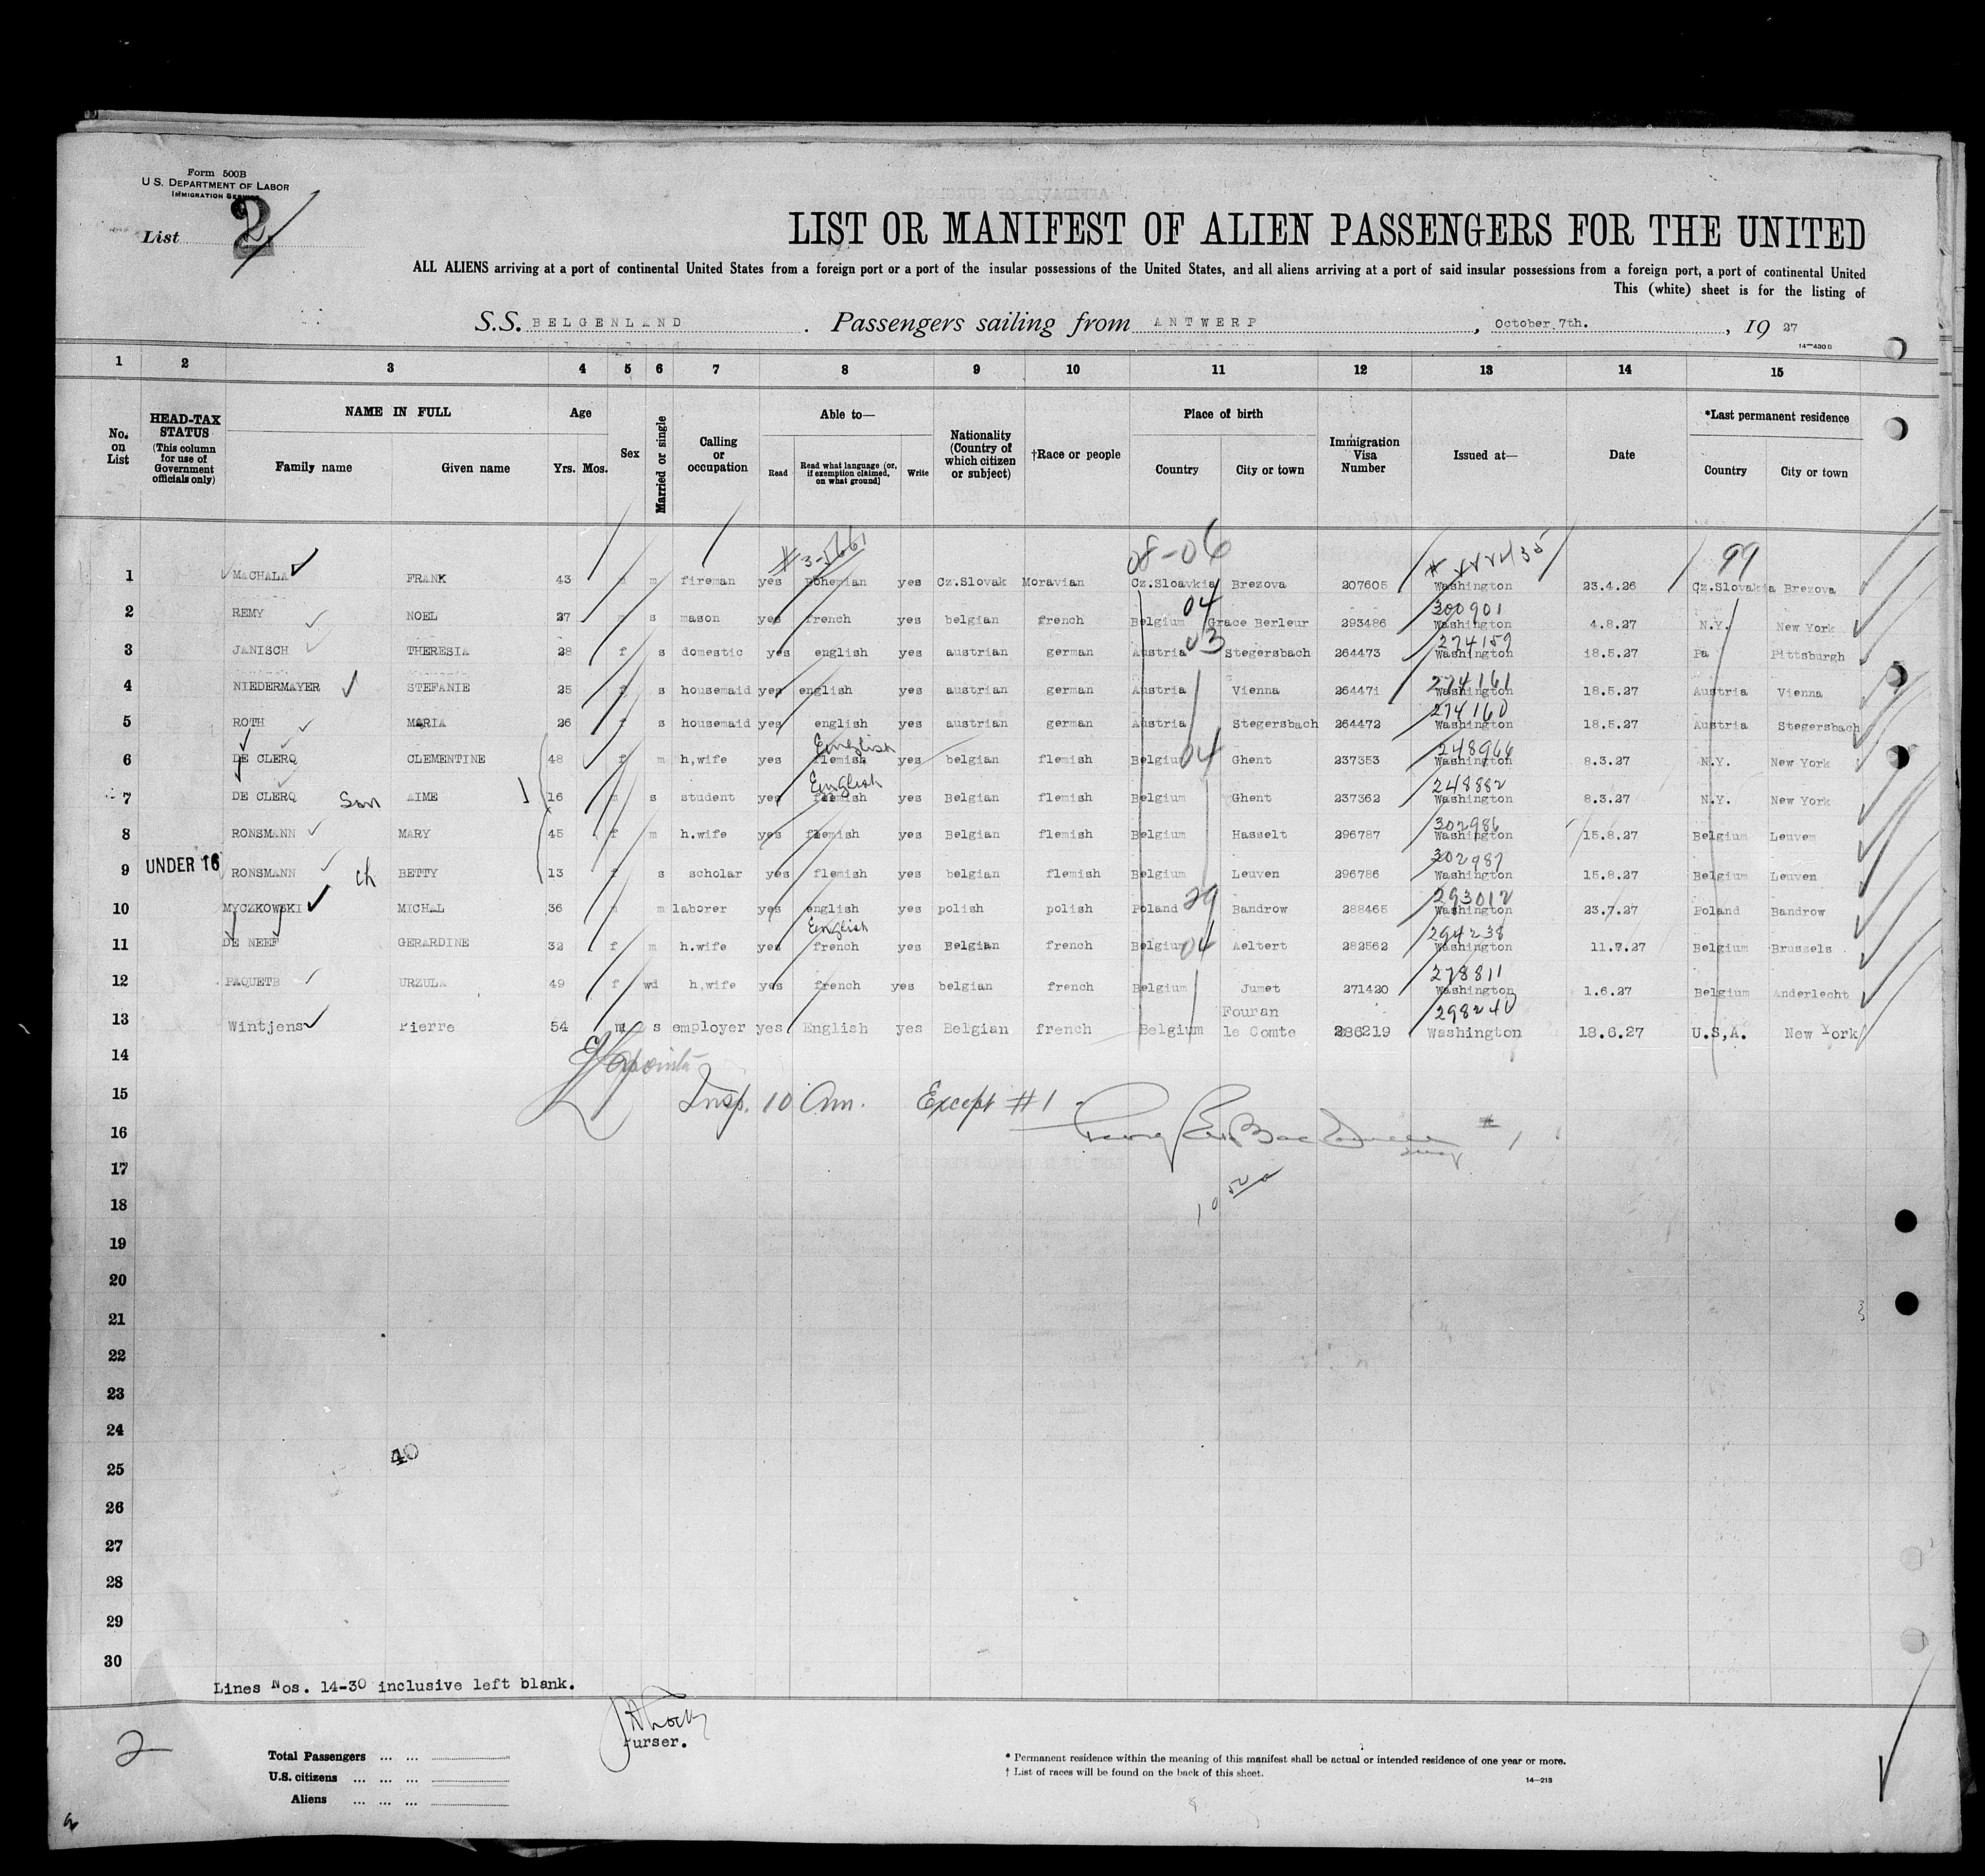 Form 500B
U.S. DEPARTMENT OF LABOR
IMMIGRATION SERVICE
List 2
LIST OR MANIFEST OF ALIEN PASSENGERS FOR THE UNITED
ALL ALIENS arriving at a port of continental United States from a foreign port or a port of the insular possessions of the United States, and all aliens arriving at a port of said insular possessions from a foreign port, a port of continental United
This (white) sheet is for the listing of
S.S. BELGENLAND . Passengers sailing from ANTWERP , October 7th. , 19 27
14—430 B
1 2 3 4 5 6 7 8 9 10 11 12 13 14 15
No. on List
HEAD-TAX STATUS (This column for use of Government officials only)
NAME IN FULL
Family name Given name
Age
Yrs. Mos.
Sex
Married or single
Calling or occupation
Able to—
Read
Read what language (or, if exemption claimed, on what ground)
Write
Nationality (Country of which citizen or subject)
†Race or people
Place of birth
Country City or town
Immigration Visa Number
Issued at—
Date
*Last permanent residence
Country City or town
08-06 99
1 MACHALA FRANK 43 m m fireman yes bohemian yes Cz.Slovak Moravian Cz.Sloavkia Brezova 207605 Washington 23.4.26 Cz.Slovakia Brezova
04 300901
2 REMY NOEL 27 m s mason yes french yes belgian french Belgium Grace Berleur 293486 Washington 4.8.27 N.Y. New York
03 274159
3 JANISCH THERESIA 28 f s domestic yes english yes austrian german Austria Stegersbach 264473 Washington 18.5.27 Pa Pittsburgh
274161
4 NIEDERMAYER STEFANIE 25 f s housemaid yes english yes austrian german Austria Vienna 264471 Washington 18.5.27 Austria Vienna
274160
5 ROTH MARIA 26 f s housemaid yes english yes austrian german Austria Stegersbach 264472 Washington 18.5.27 Austria Stegersbach
English 248966
6 DE CLERQ CLEMENTINE 48 f m h,wife yes flemish yes belgian flemish Belgium 04 Ghent 237353 Washington 8.3.27 N.Y. New York
English 248882
7 DE CLERQ Son AIME 16 m s student yes flemish yes Belgian flemish Belgium Ghent 237362 Washington 8.3.27 N.Y. New York
302986
8 RONSMANN MARY 45 f m h.wife yes flemish yes Belgian flemish Belgium Hasselt 296787 Washington 15.8.27 Belgium Leuvem
302987
9 UNDER 16 RONSMANN ch BETTY 13 f s scholar yes flemish yes belgian flemish Belgium Leuven 296786 Washington 15.8.27 Belgium Leuven
293012
10 MYCZKOWSKI MICHAL 36 m m laborer yes english yes polish polish Poland 29 Bandrow 288465 Washington 23.7.27 Poland Bandrow
English 294238
11 DE NEEF GERARDINE 32 f m h.wife yes french yes Belgian french Belgium 04 Aeltert 282562 Washington 11.7.27 Belgium Brussels
278811
12 PAQUETB URZULA 49 f wd h,wife yes french yes belgian french Belgium Jumet 271420 Washington 1.6.27 Belgium Anderlecht
298240
13 Wintjens Pierre 54 m s employer yes English yes Belgian french Belgium Fouran le Comte 286219 Washington 18.6.27 U.S.A. New York
14
15 Insp. 10 Am. Except #1
16 # 1
17
18
19
20
21
22
23
24
25 40
26
27
28
29
30
Lines Nos. 14-30 inclusive left blank.
Purser.
2
Total Passengers ... ...
U.S. citizens ... ... ...
Aliens ... ... ...
* Permanent residence within the meaning of this manifest shall be actual or intended residence of one year or more.
† List of races will be found on the back of this sheet.
14—213